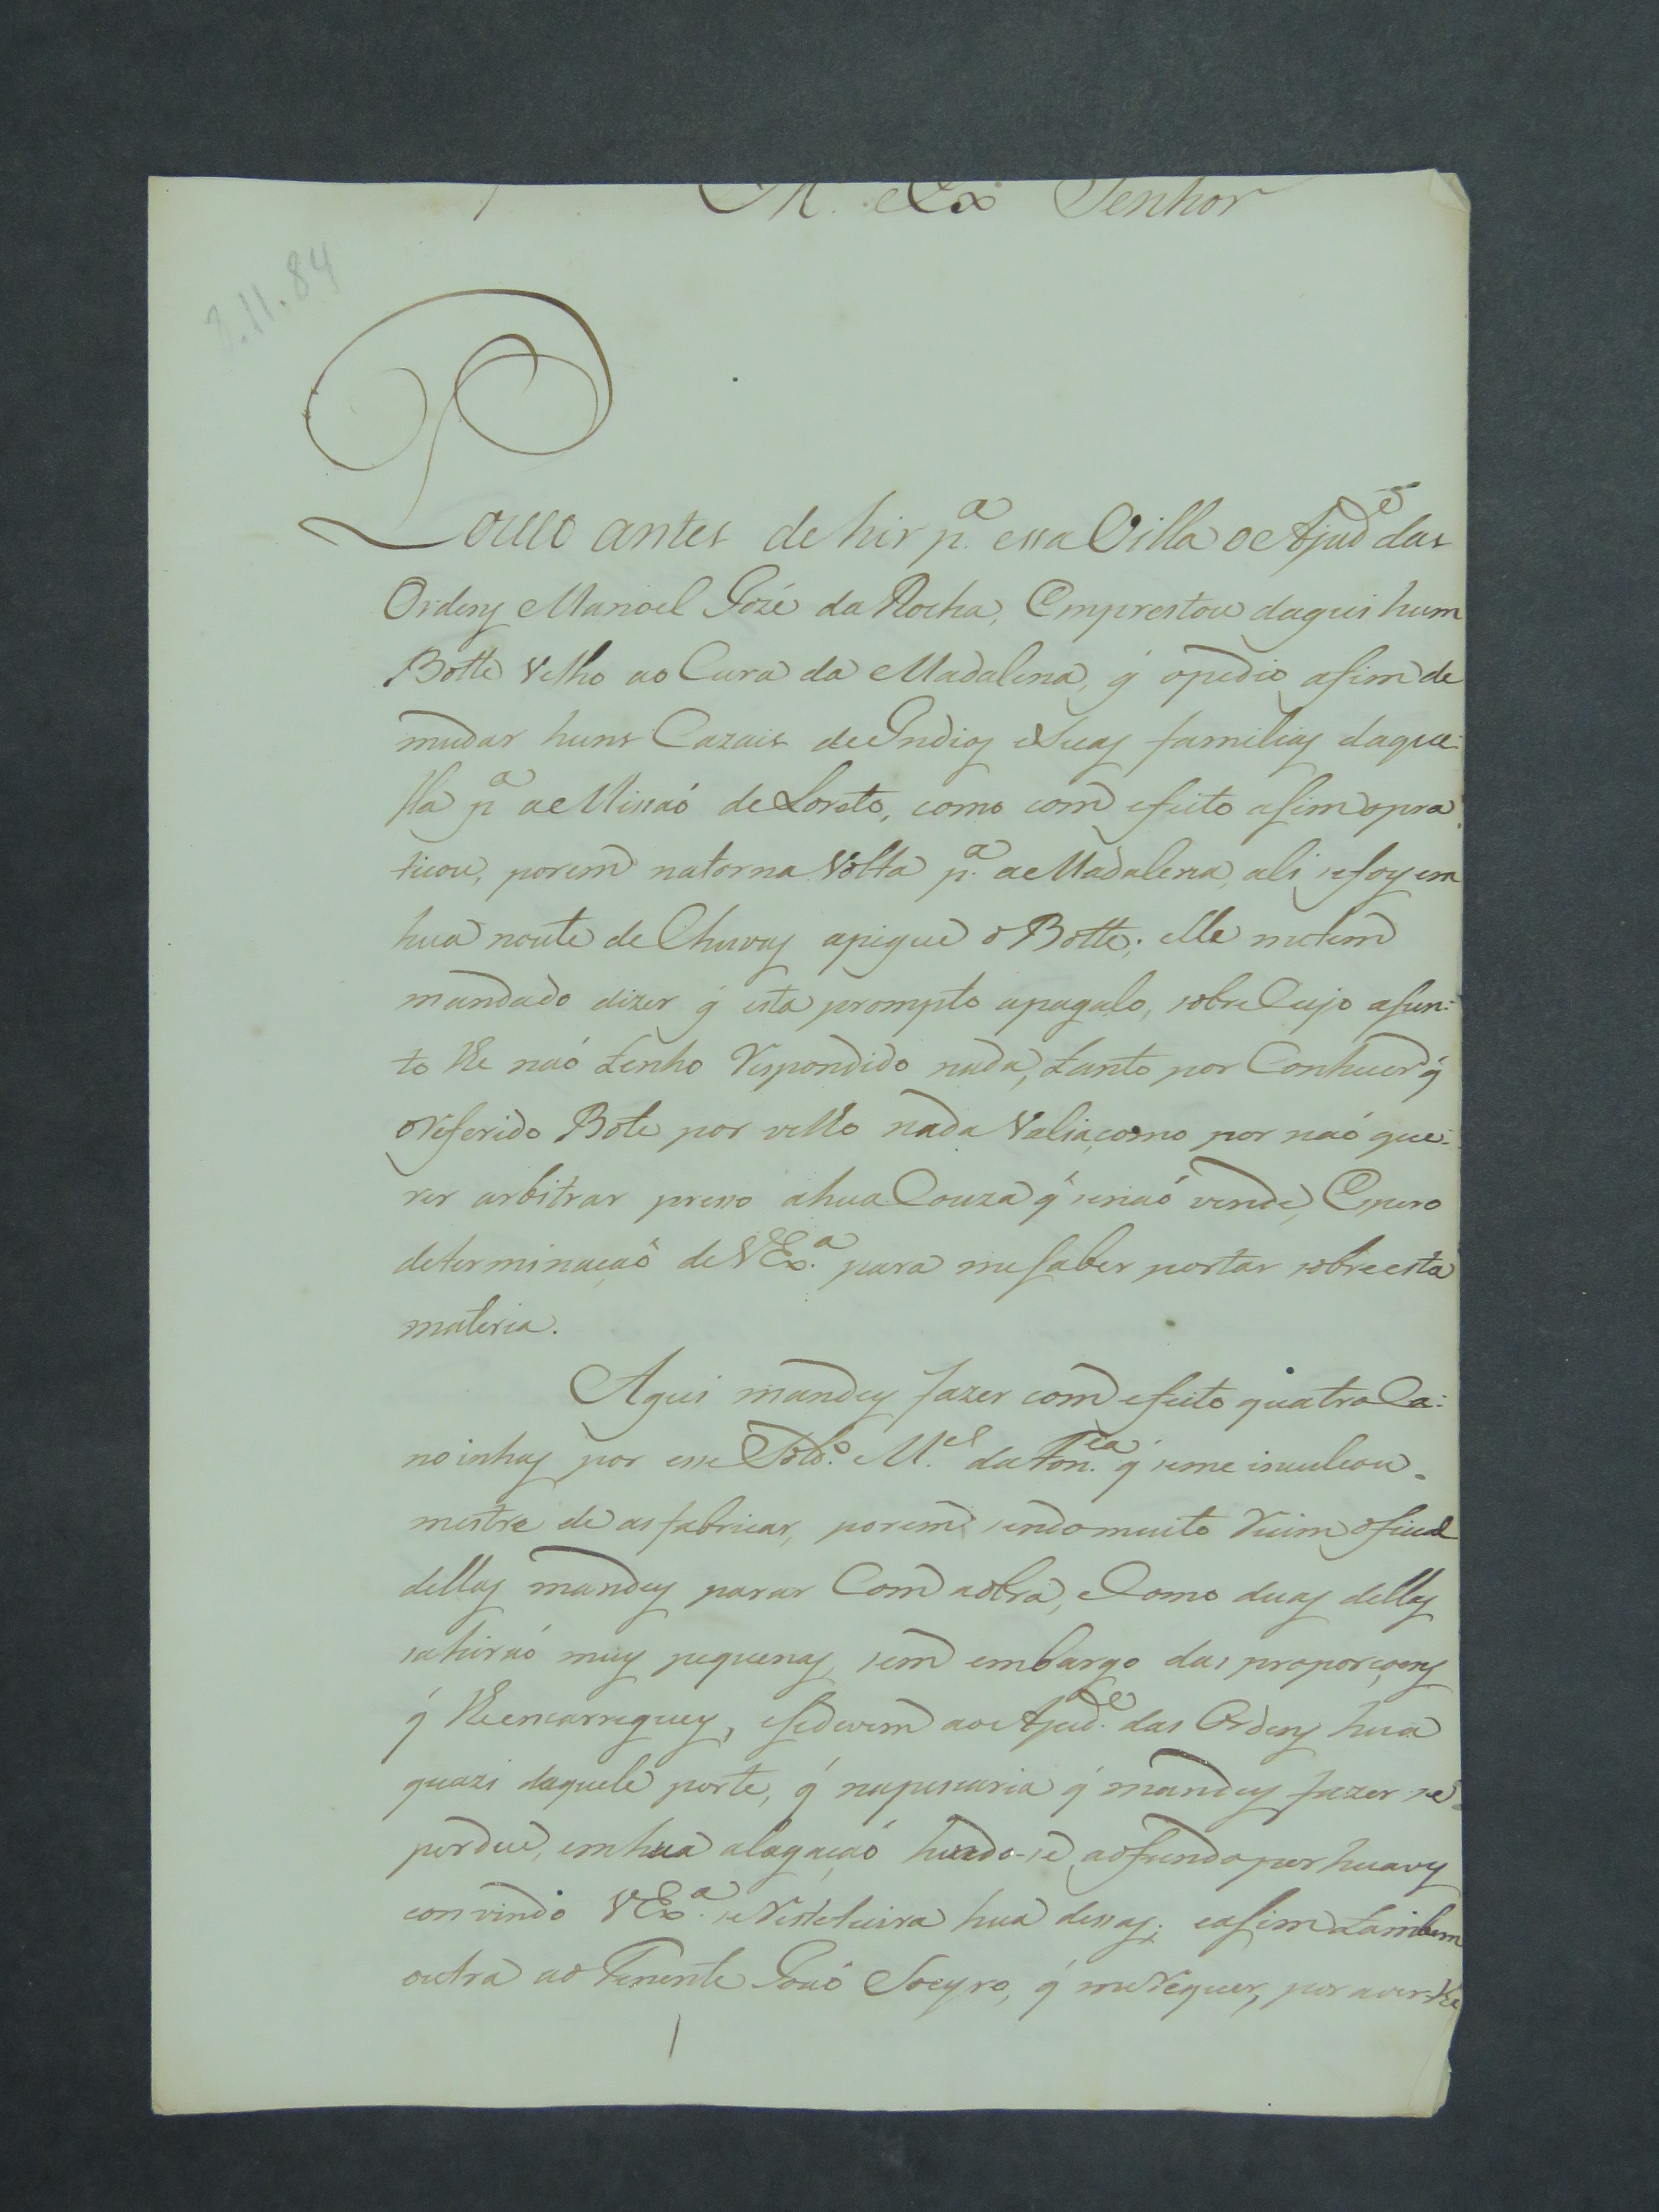 M. Ex Senhor
8.11.84
Pouco antes de hir p.ª essa Villa o Ajud.e das
Ordeñs Manoel Jozé da Rocha, Emprestou daqui hum
Botte velho ao Cura da Madalena, q́ opedio afim de
mudar huns Cazais de Indios e suas familias daque:
lla p.ª a Missaó de Loreto, como com efeito asim opra
ticou, porem natorna volta p.ª a Madalena, ali sefoy em
hua noute de Chuvas apique o Botte; elle metem
mandado dizer q́ esta prompto apagalo, sobre Cujo asun:
to lhe naó tenho respondido nada, tanto por Conhecer q́
oreferido Bote por velho nada valia, como por naó que:
rer arbitrar presso ahua Couza q́ senaó vende, Espero
determinaçaó de VEx.ª para mesaber portar sobre esta
materia.
Aqui mandey fazer com efeito quatro Ca:
noinhas por esse Sold.º M.el da Fon.ca q́ seme inculcou
mestre de as fabricar, porem sendo muito ruim oficial
dellas mandey parar Com aobra, e Como duas dellas
sahiraó muy pequenas, sem embargo das proporçoens
q́ lhe encarreguey, esedevem ao Ajud.e das Ordens hua
quazi daquele porte, q́ napescaria q́ mandey fazer se
perdeu, em hua alagaçaó hindo-se aofundo por
convindo VEx.ª se restetuira hua dessas; easim tambem
outra ao Tenente Joaó Soeyro, q́ me requer, por aver-lhe